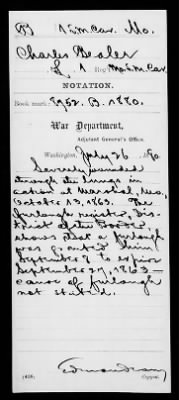 B 1 S.M. Cav. Mo.
Charles Dealer
L, 1 Reg't Mo. S.M. Cav.
NOTATION.
Book mark: 8952. B. 1880.
War Department,
Adjutant General's Office,
Washington, July 26, 90
Severely wounded
through the knee in
action at Marshal, Mo,
October 13, 1863. The
furlough register, Dis-
trict of the Border,
shows that a furlough
was granted him
September 7 to expire
September 27, 1863—
cause of furlough
not stated.
(458)
Copyist.